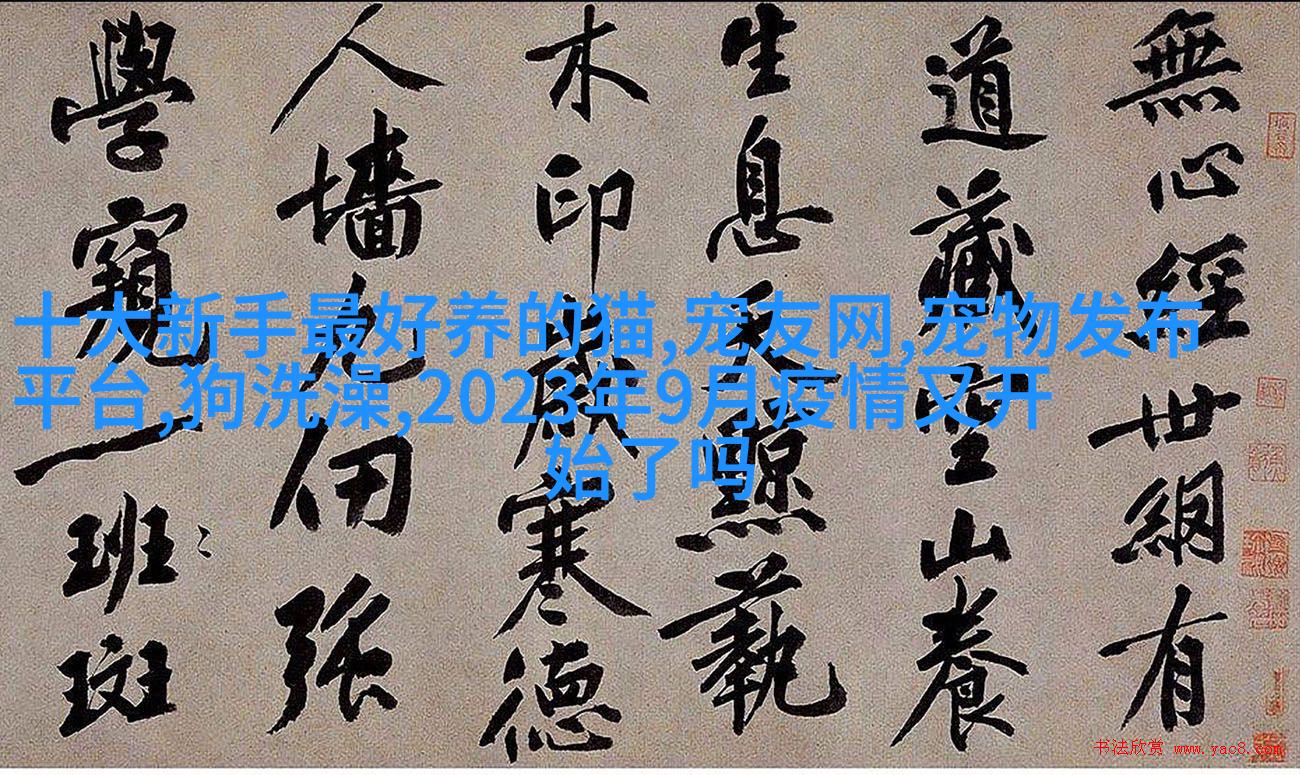 無心經世網有
道藏空山養
生息天黥
木印歲寒德
人牆九仞張
學窺一班〻斑
十大新手最好养的猫,宠友网,宠物发布
平台,狗洗澡,2023年9月疫情又开
始了吗
书法欣赏 www.yac8.com